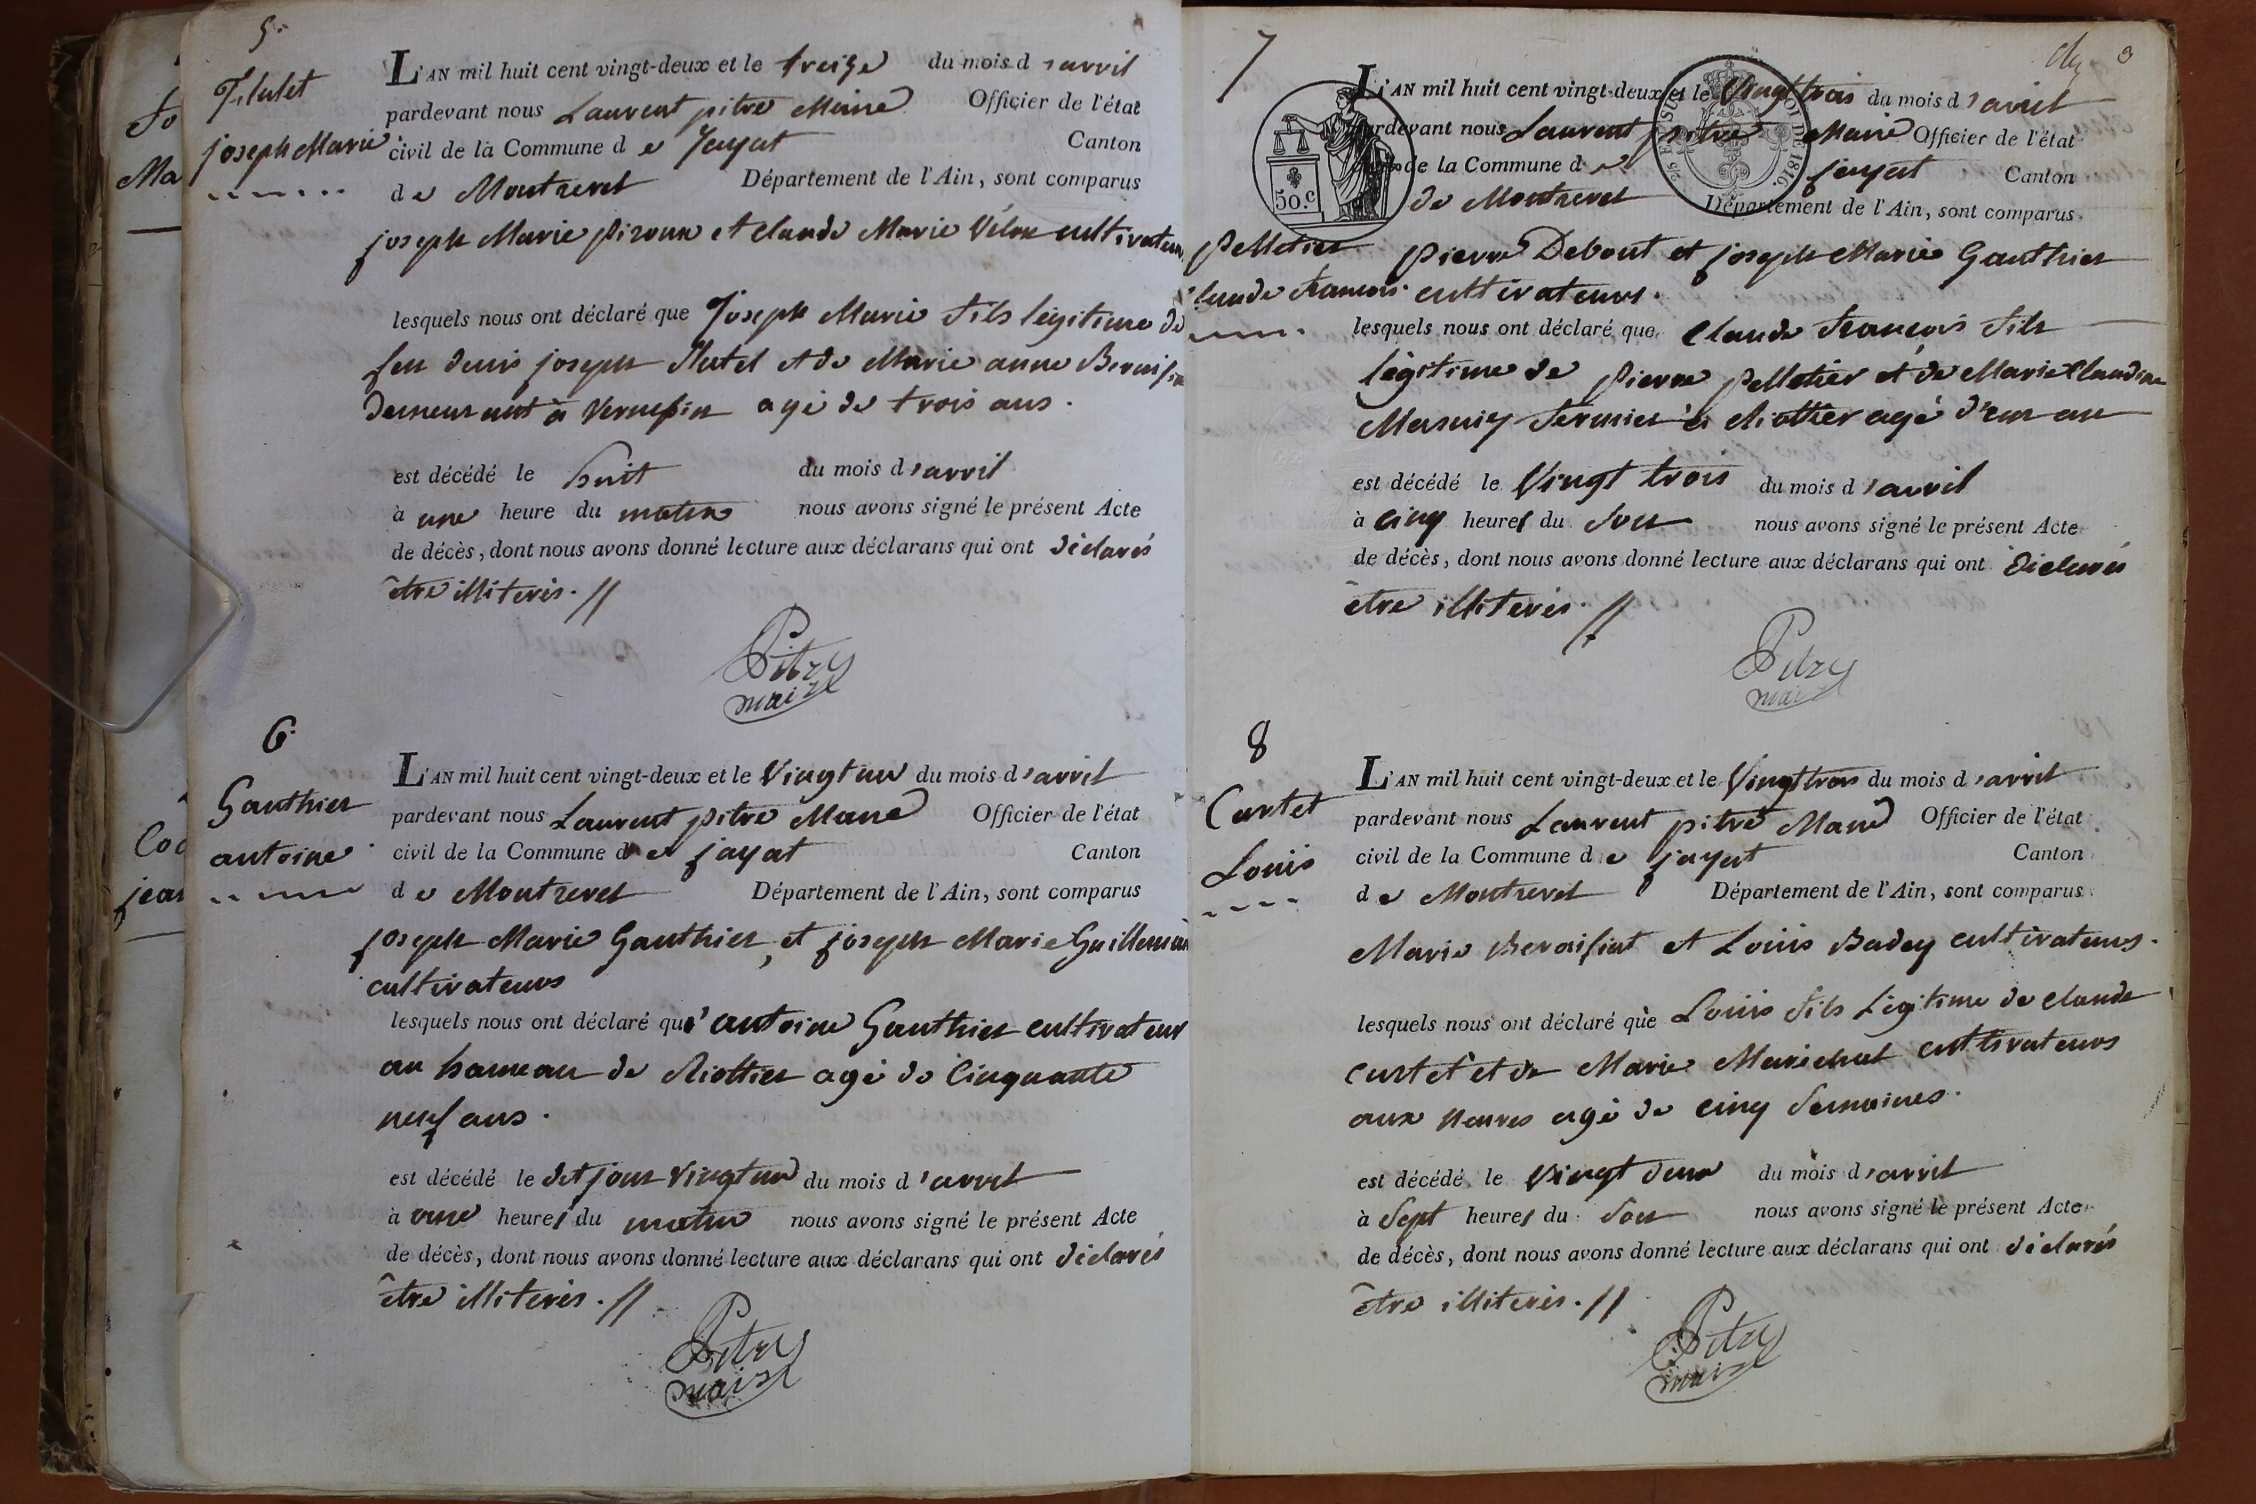 5.
joseph Marie
L'AN mil huit cent vingt-deux et le treize du mois d'avril
pardevant nous Laurent pitre Maire Officier de l'état
civil de la Commune de Jayat Canton
de Montrevel Département de l'Ain, sont comparus
joseph Marie piroux et Claude Marie Vélon cultivateurs
lesquels nous ont déclaré que Joseph Marie fils légitime de
feu denis joseph et de Marie anne
demeurant à agé de trois ans.
est décédé le huit du mois d'avril
à une heure du matin nous avons signé le présent Acte
de décès, dont nous avons donné lecture aux déclarans qui ont déclarés
être illiterés. //
Pitre
maire
6.
Gauthier
antoine
L'AN mil huit cent vingt-deux et le Vingt un du mois d'avril
pardevant nous Laurent pitre Maire Officier de l'état
civil de la Commune de jayat Canton
de Montrevel Département de l'Ain, sont comparus
joseph Marie Gauthier, et joseph Marie Guillemin
cultivateurs
lesquels nous ont déclaré qu'antoine Gauthier cultivateur
au hameau de Riottier agé de Cinquante
neuf ans.
est décédé le dit jour Vingt un du mois d'avril
à onze heures du matin nous avons signé le présent Acte
de décès, dont nous avons donné lecture aux déclarans qui ont déclarés
être illiterés. //
Pitre
maire
3
7
LOI DE 1816.
50.c
pelletier
Claude francois
L'AN mil huit cent vingt-deux et le Vingt trois du mois d'avril
pardevant nous Laurent pitre Maire Officier de l'état
de la Commune de jayat Canton
de Montrevel Département de l'Ain, sont comparus
pierre Debout et joseph Marie Gauthier
cultivateurs.
lesquels nous ont déclaré que Claude francois fils
légitime de pierre pelletier et de Marie Claudine
Masuiy fermier à Riottier agé d'un an
est décédé le Vingt trois du mois d'avril
à cinq heures du soir nous avons signé le présent Acte
de décès, dont nous avons donné lecture aux déclarans qui ont déclarés
être illiterés. //
Pitre
maire
8
Curtet
Louis
L'AN mil huit cent vingt-deux et le Vingt trois du mois d'avril
pardevant nous Laurent pitre Maire Officier de l'état
civil de la Commune de jayat Canton
de Montrevel Département de l'Ain, sont comparus
Marie Beraifiat et Louis Badey cultivateurs.
lesquels nous ont déclaré que Louis fils légitime de Claude
Curtet et de Marie Marechal cultivateurs
aux agé de cinq semaines.
est décédé le Vingt deux du mois d'avril
à sept heures du soir nous avons signé le présent Acte
de décès, dont nous avons donné lecture aux déclarans qui ont déclarés
être illiterés. //
Pitre
maire